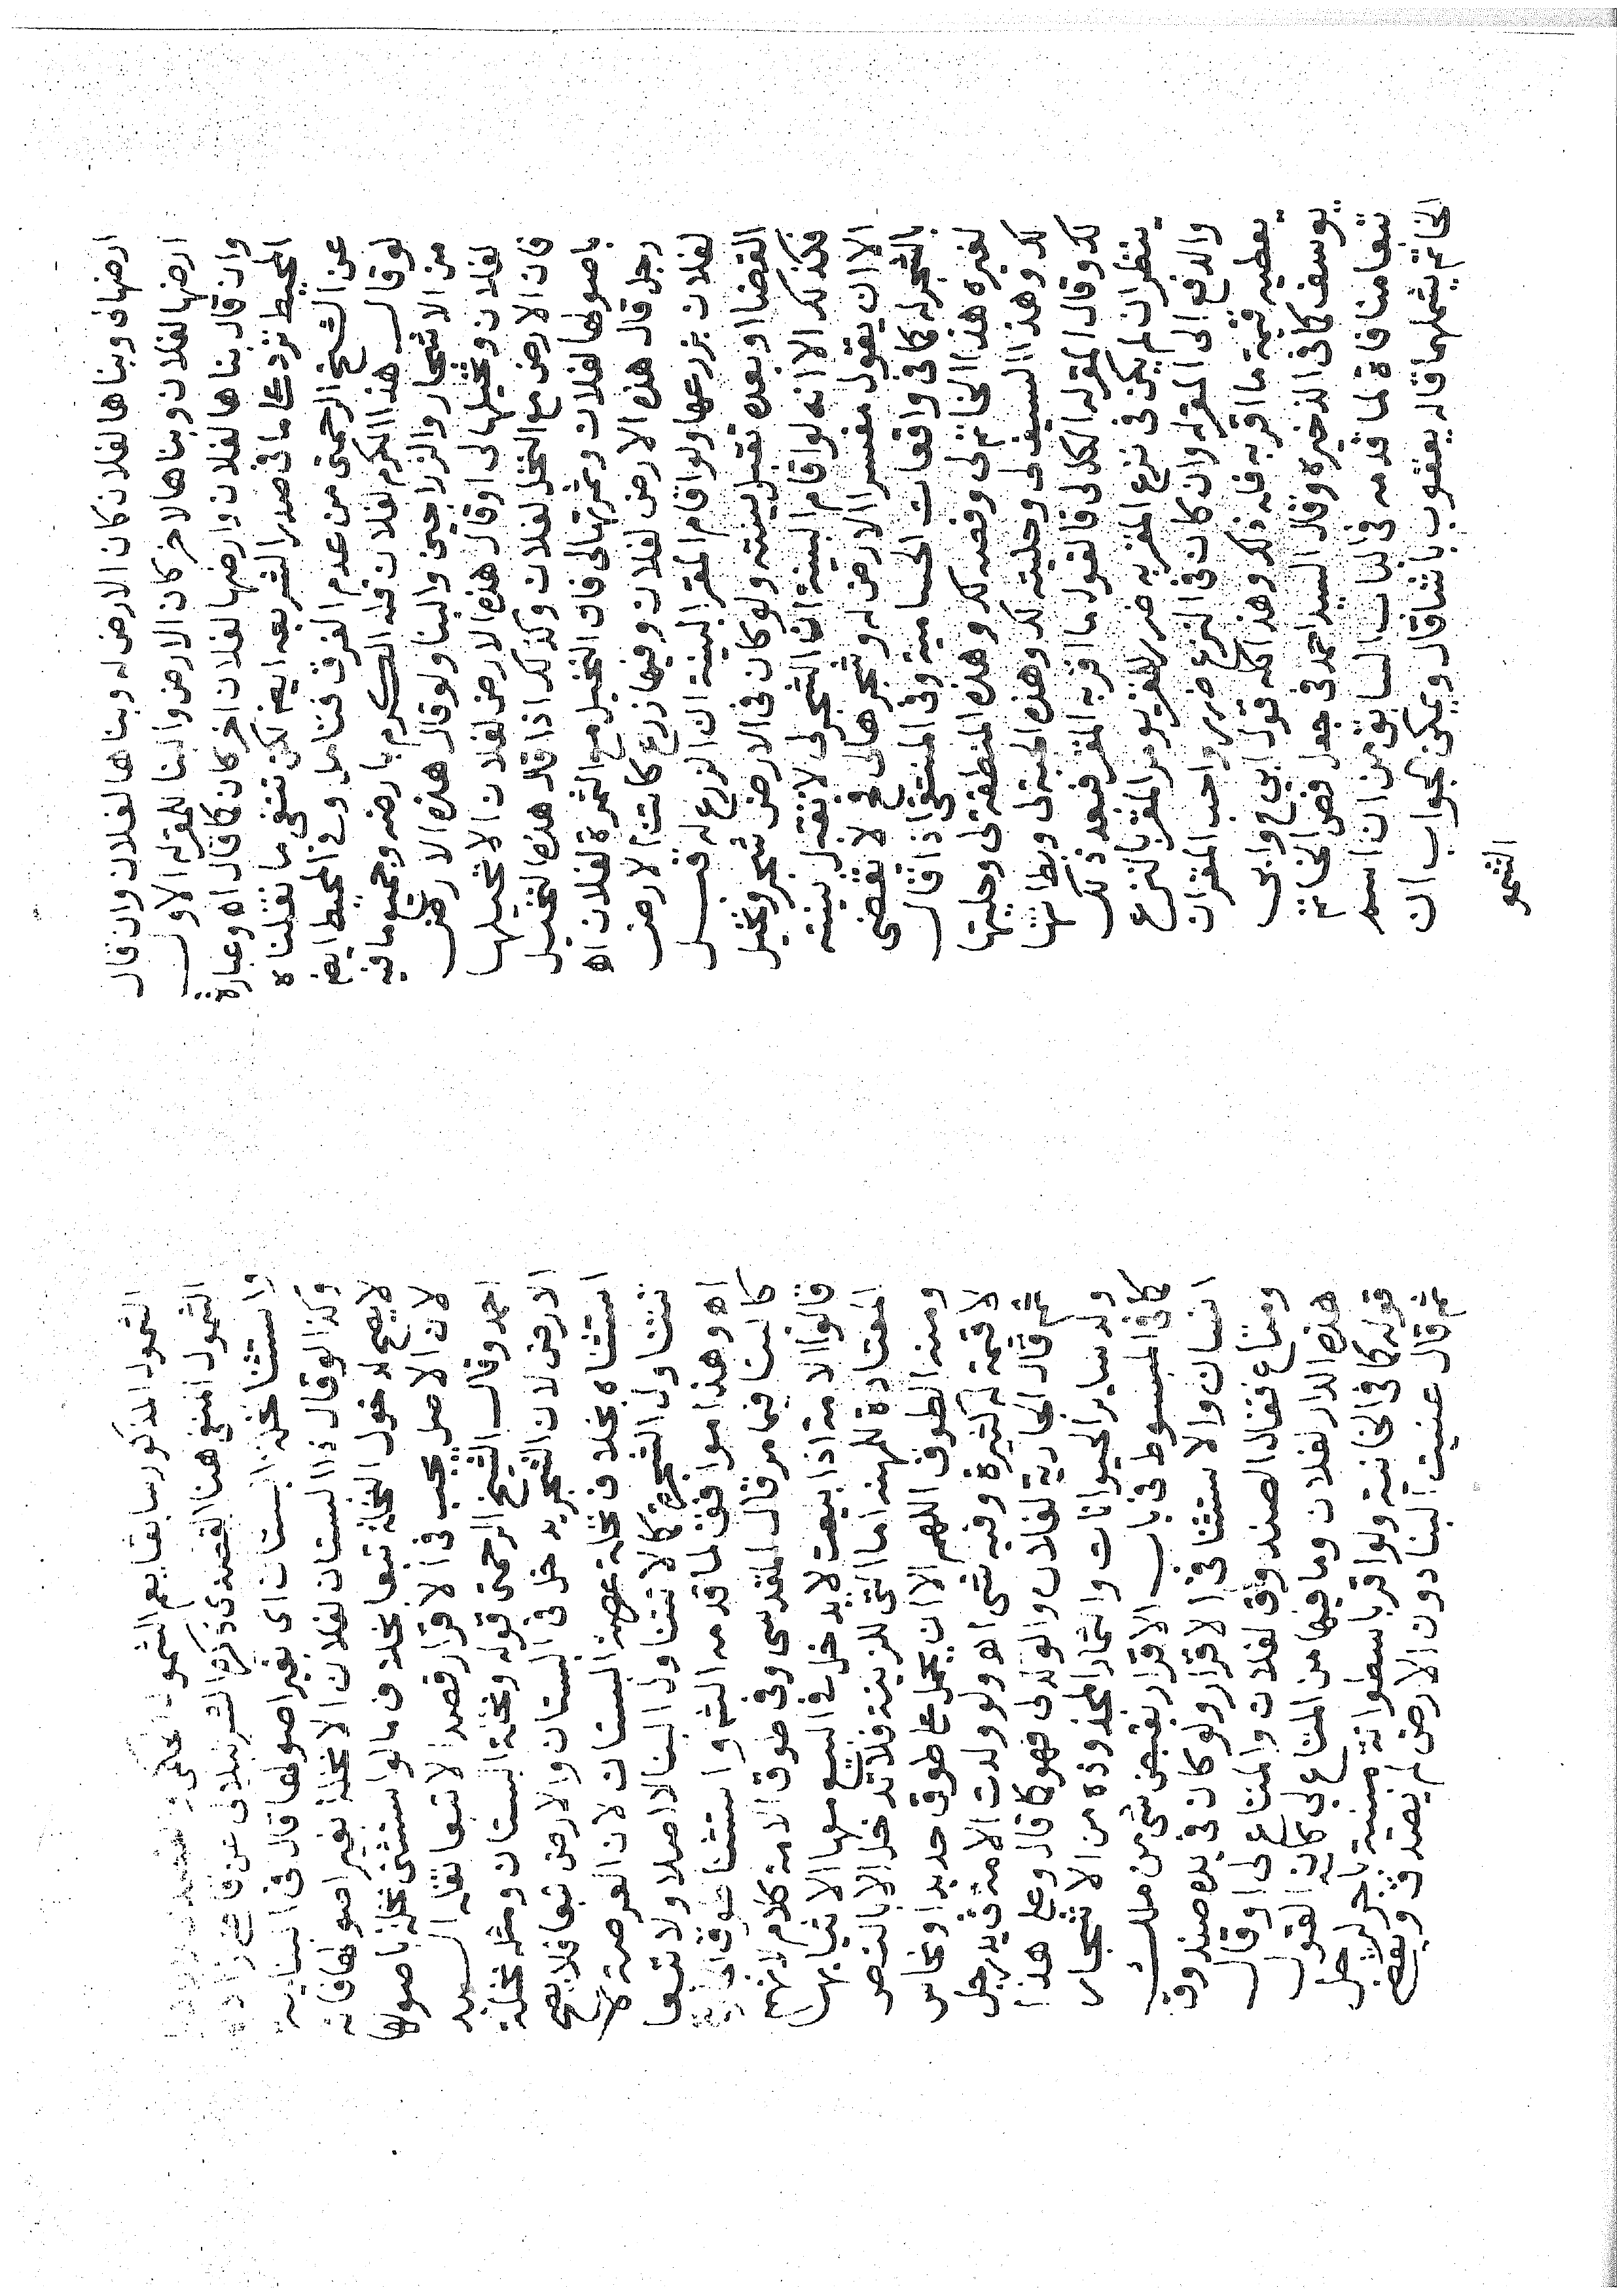 ارضها لى وبناها لفلان كان الارض له وبناها لفلان وان قال
ارضها لفلان وبناها لاخر كان الارض والبنا للمقر له الاول
وان قال بناها لفلان وارضها لفلان اخر كان كما قال اه وعبارة
المحيط ترد على ما فى صدر الشريعه ايضا لكن تنفى ما نقلناه
عن الشيخ الرحمتى من عدم الفرق فتامل وفى المحيط ايضا
لو قال هذا الكرم لفلان فله الكرم بارضه وجميع ما فيه
من الاشجار والزراجين والبنا ولو قال هذه الارض
لفلان ونخيلها لى او قال هذه الارض لفلان الا نخيلها
فان الارض مع النخل لفلان وكذلك اذا قال هذه النخيل
باصولها لفلان وثمرتها لى فان النخيل مع الثمرة لفلان اه
رجل قال هذه الارض لفلان وفيها زرع كانت الارض
لفلان بزرعها ولو اقام المقر البينة ان الزرع له قبل
القضا او بعده تقبل بينته ولو كان فى الارض شجر ونخيل
فكذلك الا انه لو اقام البينة ان الشجر لى لا تقبل بينته
الا ان يقول مفسرا الارض له وشجرها لى فح لا يقضى
بالشجر له كما فى واقعات الحسامية وفى المنتقى اذا قال
لغيره هذا الخاتم لى وفصه لك وهذه المنطقة لى وحليتها
لك وهذا السيف لى وحليته لك وهذه الجبة لى وبطانتها
لك وقال المقر له الكل لى فالقول ما اقر به المقر فبعد ذلك
ينظر ان لم يكن فى نزع المقر به ضرر للمقر يومر المقر بالنزع
والدفع الى المقر له وان كان فى النزع ضرر واحب المقر ان
يعطيه قيمة ما اقر به فله ذلك وهذا كله قول ابى ح وابى
يوسف كما فى الذخيرة وقال السيد احمد فى جعل فص الخاتم
تبعا منافاة لما قدمه فى الباب السابق من ان اسم
الخاتم يشملهما قال يعقوب باشا قال ويمكن الجواب ان
الشمو
الشمول المذكور سابقا يعم الشمول
الشمول المنفى هنا القصدى ذكره الشرنبلالى عن قاضى زاده
واستثنا نخلة البستان اى بغير اصولها قال فى الخانيه
وكذا لو قال ذا البستان لفلان الا نخلة بغير اصولها فانه
لا يصح لدخول النخلة تبعا بخلاف ما لو استثنى نخلة باصولها
لان الاصل يجب فى الاقرار قصدا لا تبعا نقله السيد
احمد وقال الشيخ الرحمتى قوله ونخلة البستان ومثله نخلة
الارض لان الشجر يدخل فى البستان والارض تبعا فلا يصح
استثناه بخلاف نخلة عرصة البستان لان العرصة لا
تتناول الشجرة كما لا تتناول البنا لا اصلا ولا تبعا
اه وهذا موافق لما قدمه الش واستثنا طوق الجارية
كالبنا فيما مر قال المقدسى وفى طوق الامة كلام لانهم
قالوا الامة اذا بيعت لا يدخل فى البيع معها الا ثيابها
المعتادة للمهنه اما التى للزينة فلا تدخل الا بالنص
ومنه الطوق اللهم الا ان يحمل على طوق حديد او نحاس
لا قيمة له كثيرة وفيه شى اه ولو ولدت الامة فى يد رجل
ثم قال الجارية لفلان والولد لى فهو كما قال وعلى هذا
ولد ساير الحيوانات والثمار المجذوذه من الاشجار
كما فى المبسوط فى باب الاقرار بقبض شى من ملك
انسان والاستثنا فى الاقرار ولو كان فى يده صندوق
ومتاع فقال الصندوق لفلان والمتاع لى او قال
هذه الدار لفلان وما فيها من المتاع لى كان القول
قوله كما فى الخانية ولو اقر باسطوانة مبنية باجر لرجل
ثم قال عنيت البنا دون الارض لم يصدق ويقض